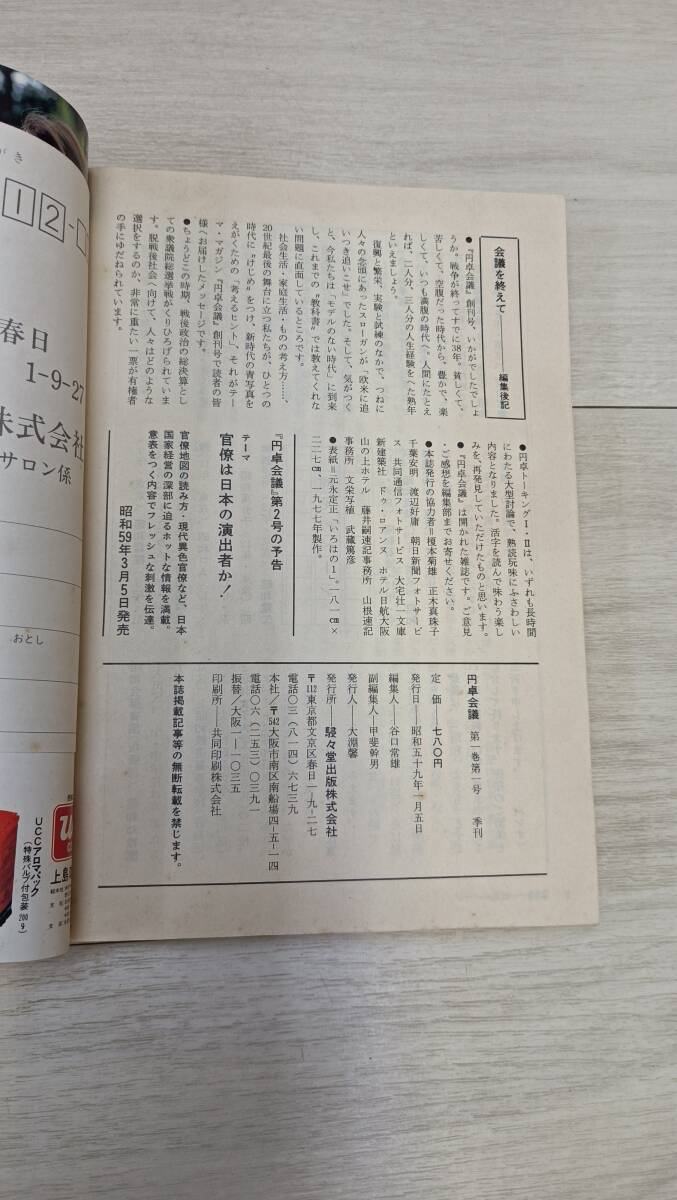 会議を終えて――――編集後記
●『円卓会議』創刊号、いかがでしたでしょ
うか。戦争が終ってすでに38年。貧しくて、
苦しくて、空腹だった時代から、豊かで、楽
しくて、いつも満腹の時代へ。人間にたとえ
れば、二人分、三人分の人生経験をへた熟年
といえましょう。
復興と繁栄、実験と試練のなかで、つねに
人々の念頭にあったスローガンが「欧米に追
いつき追いこせ」でした。そして、気がつく
と、今私たちは「モデルのない時代」に到来
し、これまでの〝教科書〟では教えてくれな
い問題に直面しているところです。
社会生活・家庭生活・ものの考え方……、
20世紀最後の舞台に立つ私たちが、ひとつの
時代に〝けじめ〟をつけ、新時代の青写真を
えがくための「考えるヒント」、それがテー
マ・マガジン『円卓会議』創刊号で読者の皆
様へお届けしたメッセージです。
●ちょうどこの時期、戦後政治の総決算とし
ての衆議院総選挙戦がくりひろげられていま
す。脱戦後社会へ向けて、人々はどのような
選択をするのか、非常に重たい一票が有権者
の手にゆだねられています。
●円卓トーキングⅠ・Ⅱは、いずれも長時間
にわたる大型討論で、熟読玩味にふさわしい
内容となりました。活字を読んで味わう楽し
みを、再発見していただけたものと思います。
●『円卓会議』は開かれた雑誌です。ご意見
・ご感想を編集部までお寄せください。
●本誌発行の協力者＝榎本菊雄　正木真珠子
千葉安明　渡辺好庸　朝日新聞フォトサービ
ス　共同通信フォトサービス　大宅壮一文庫
新建築社　ドゥ・ロアンヌ　ホテル日航大阪
山の上ホテル　藤井嗣速記事務所　山根速記
事務所　文栄写植　武蔵篤彦
●表紙＝元永定正「いろはの1」。一八一㎝×
二二七㎝、一九七七年製作。
『円卓会議』第2号の予告
テーマ
官僚は日本の演出者か！
官僚地図の読み方・現代異色官僚など、日本
国家経営の深部に迫るホットな情報を満載。
意表をつく内容でフレッシュな刺激を伝達。
昭和59年3月5日発売
円卓会議　第一巻第一号　季刊
定　価――七八〇円
発行日――昭和五十九年一月五日
編集人――谷口常雄
副編集人――甲斐幹男
発行人――大淵馨
発行所――駸々堂出版株式会社
〒112東京都文京区春日一-九-二七
電話〇三（八一四）六七三九
本社／〒542大阪市南区南船場四-五-一四
電話〇六（二五三）〇三九一
振替／大阪一-一〇三五
印刷所――共同印刷株式会社
本誌掲載記事等の無断転載を禁じます。
がき
12-
春日
1-9-27
株式会社
サロン係
おとし
UCCアロマパック
（特殊バルブ付包装200g）
上島